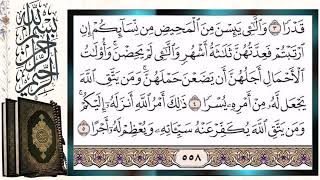 بسم الله الرحمن الرحيم
قَدْرًا ٣ وَٱلَّٰٓـِٔى يَئِسْنَ مِنَ ٱلْمَحِيضِ مِن نِّسَآئِكُمْ إِنِ
ٱرْتَبْتُمْ فَعِدَّتُهُنَّ ثَلَٰثَةُ أَشْهُرٍ وَٱلَّٰٓـِٔى لَمْ يَحِضْنَ ۚ وَأُو۟لَٰتُ
ٱلْأَحْمَالِ أَجَلُهُنَّ أَن يَضَعْنَ حَمْلَهُنَّ ۚ وَمَن يَتَّقِ ٱللَّهَ
يَجْعَل لَّهُۥ مِنْ أَمْرِهِۦ يُسْرًا ٤ ذَٰلِكَ أَمْرُ ٱللَّهِ أَنزَلَهُۥٓ إِلَيْكُمْ ۚ
وَمَن يَتَّقِ ٱللَّهَ يُكَفِّرْ عَنْهُ سَيِّـَٔاتِهِۦ وَيُعْظِمْ لَهُۥٓ أَجْرًا ٥
٥٥٨